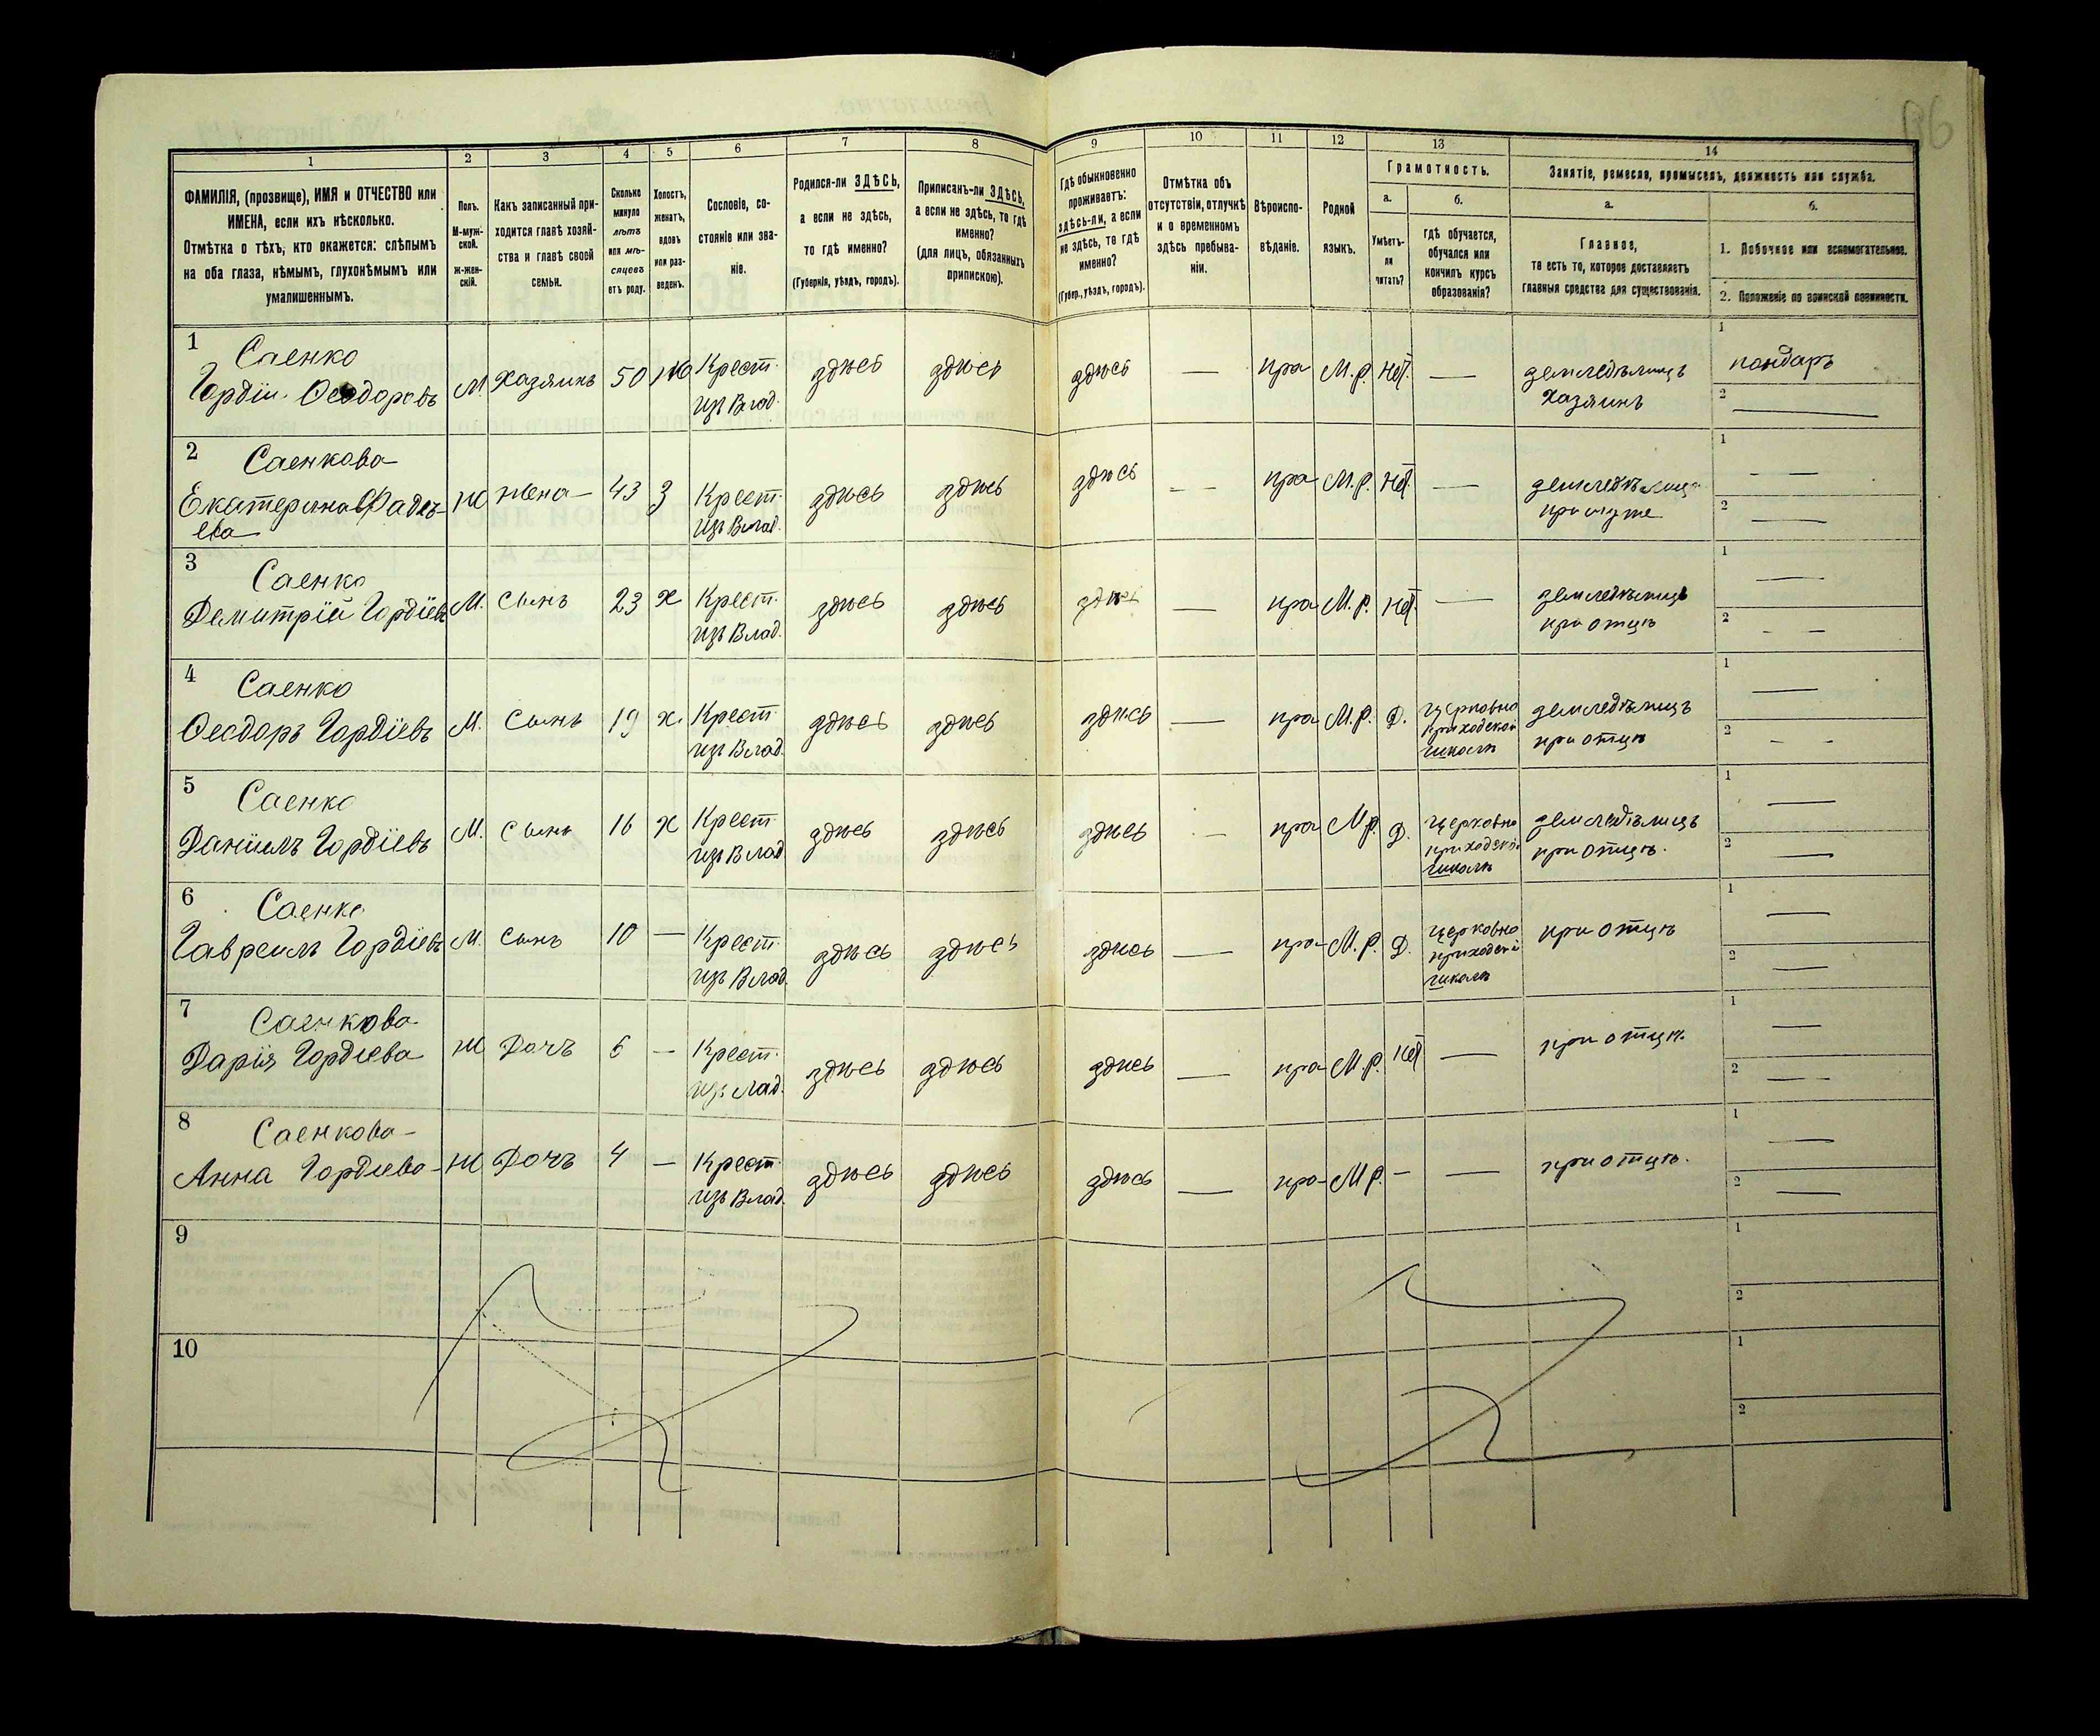 1 2 3 4 5 6 7 8 9 10 11 12 13 14
ФАМИЛІЯ, (прозвище), ИМЯ и ОТЧЕСТВО или
ИМЕНА, если ихъ нѣсколько.
Отмѣтка о тѣхъ, кто окажется: слѣпымъ
на оба глаза, нѣмымъ, глухонѣмымъ или
умалишеннымъ.
Полъ.
М-муж-
ской.
ж-жен-
скій.
Какъ записанный при-
ходится главѣ хозяй-
ства и главѣ своей
семьи.
Сколько
минуло
лѣтъ
или мѣ-
сяцевъ
отъ роду.
Холостъ,
женатъ,
вдовъ
или раз-
веденъ.
Сословіе, со-
стояніе или зва-
ніе.
Родился-ли ЗДѢСЬ,
а если не здѣсь,
то гдѣ именно?
(Губернія, уѣздъ, городъ).
Приписанъ-ли ЗДѢСЬ,
а если не здѣсь, то гдѣ
именно?
(для лицъ, обязанныхъ
припискою).
Гдѣ обыкновенно
проживаетъ:
здѣсь-ли, а если
не здѣсь, то гдѣ
именно?
(Губер., уѣздъ, городъ).
Отмѣтка объ
отсутствіи, отлучкѣ
и о временномъ
здѣсь пребыва-
ніи.
Вѣроиспо-
вѣданіе.
Родной
языкъ.
Грамотность.
а.
Умѣетъ-
ли
читать?
б.
гдѣ обучается,
обучался или
кончилъ курсъ
образованія?
Занятіе, ремесло, промыселъ, должность или служба.
а.
Главное,
то есть то, которое доставляетъ
главныя средства для существованія.
б.
1. Побочное или вспомогательное.
2. Положеніе по воинской повинности.
1 Саенко
Гордій Ѳеодоровъ М. Хазяинъ 50 Крест. здѣсь здѣсь здѣсь — пра М.р. нѣт. — земледѣлецъ
изъ Влад. Хазяинъ
1 пондаръ
2 —
2 Саенкова
Екатерина Фадѣ- Ж жена 43 З Крест. здѣсь здѣсь здѣсь — пра М.р. нѣт. — земледѣлецъ
ева изъ Влад. при муже
1 —
2 —
3 Саенко
Демитрій Гордіевъ М. Сынъ 23 х Крест. здѣсь здѣсь здѣсь — пра М.р. нѣт. — земледѣлецъ
изъ Влад. при отцѣ
1 —
2 —
4 Саенко
Ѳеодоръ Гордіевъ М. Сынъ 19 х. Крест. здѣсь здѣсь здѣсь — пра М.р. Д. Церковно земледѣлецъ
изъ Влад. приходской при отцѣ
школѣ
1 —
2 —
5 Саенко
Даніилъ Гордіевъ М. Сынъ 16 х Крест. здѣсь здѣсь здѣсь — пра М.р. Д. Церковно земледѣлецъ
изъ Влад. приходской при отцѣ.
школѣ
1 —
2 —
6 Саенко
Гавреилъ Гордіевъ М. Сынъ 10 — Крест. здѣсь здѣсь здѣсь — пра М.р. Д. Церковно при отцѣ
изъ Влад. приходской
школѣ
1 —
2 —
7 Саенкова
Дарія Гордіева Ж Дочъ 6 — Крест. здѣсь здѣсь здѣсь — пра М.р. нѣт — при отцѣ.
изъ Влад.
1 —
2 —
8 Саенкова
Анна Гордіева Ж Дочъ 4 — Крест. здѣсь здѣсь здѣсь — пра М.р. — — при отцѣ.
изъ Влад.
1 —
2 —
9
1
2
10
1
2